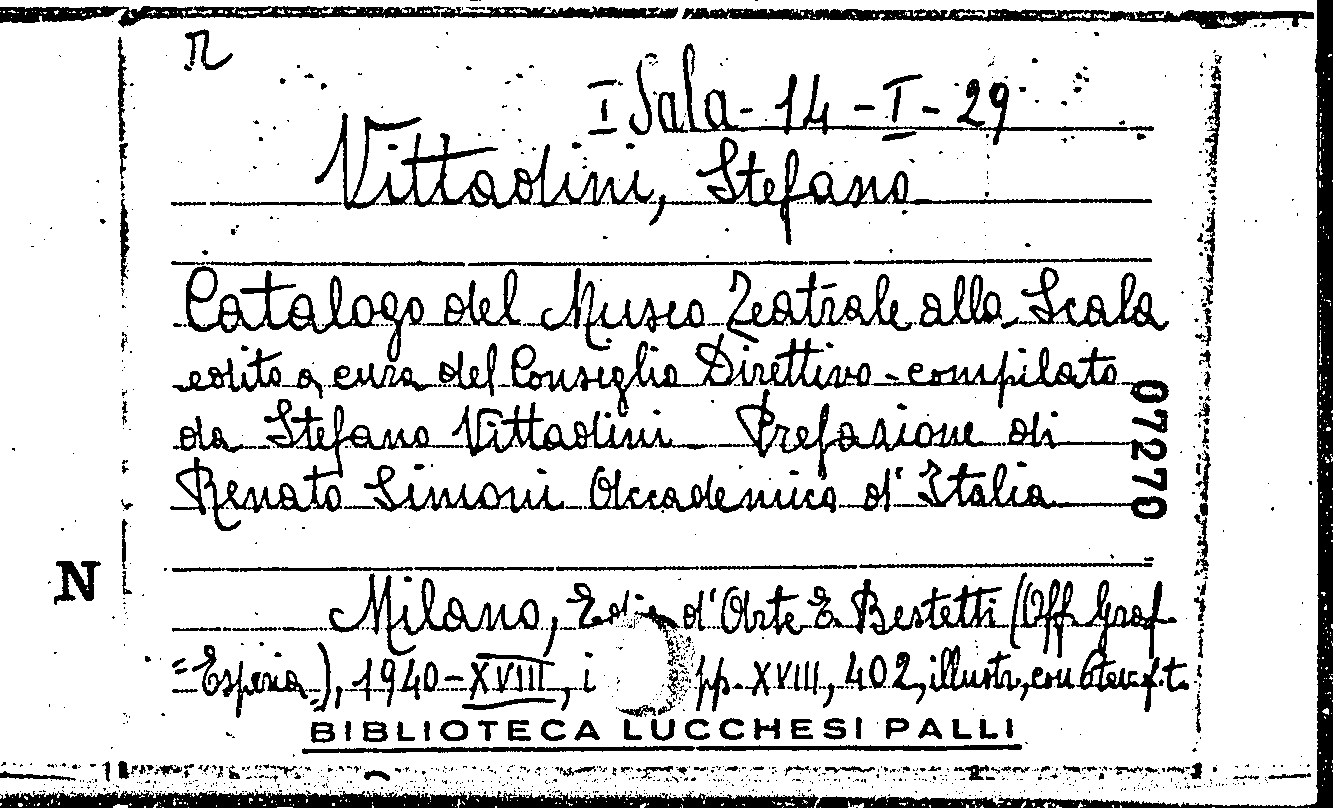 n
I Sala - 14 - I - 29
Vittadini, Stefano
Catalogo del Museo Teatrale alla Scala
edito a cura del Consiglio Direttivo - compilato
da Stefano Vittadini Prefazione di
Renato Simoni Accademico d'Italia
07270
N
Milano, Ediz. d'Arte E. Bestetti (Off. Graf.
"Esperia"), 1940-XVIII, i pp. XVIII, 402, illustr., con 6 tav. f. t.
BIBLIOTECA LUCCHESI PALLI